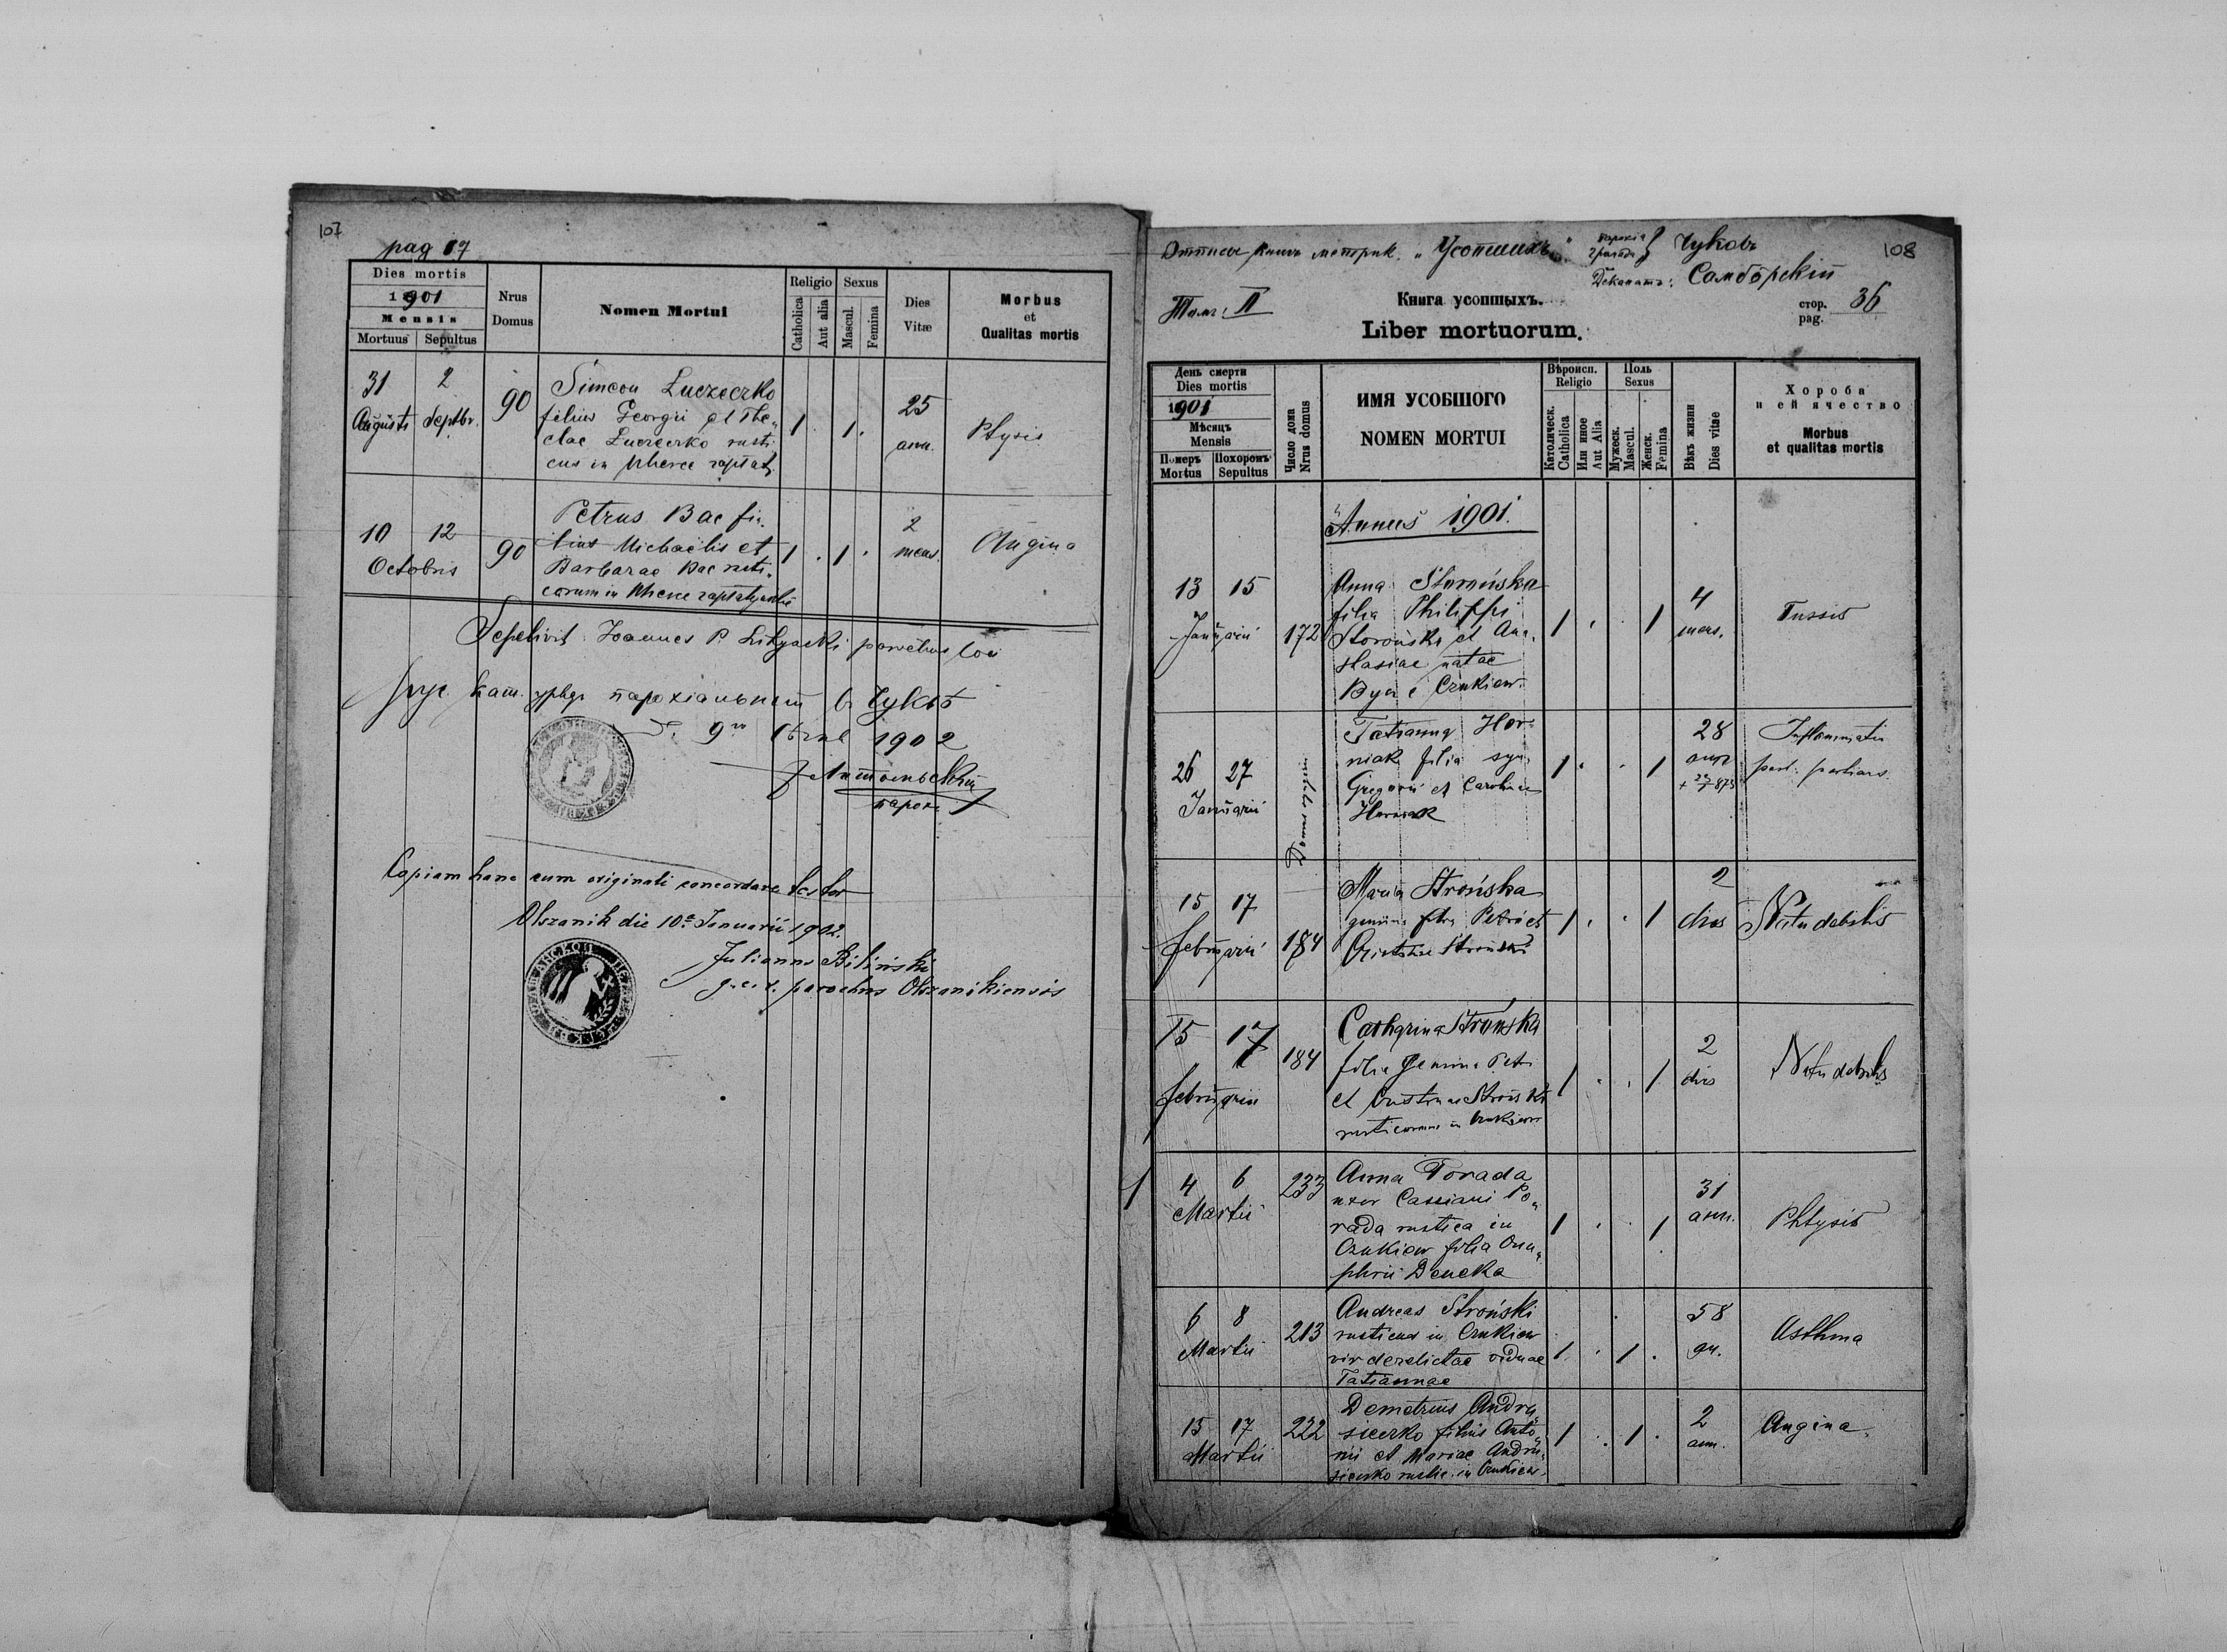 107
pag 17
Dies mortis
1901
Mensis
Mortuus Sepultus
Nrus Domus
Nomen Mortui
Religio
Catholica
Aut alia
Sexus
Mascul.
Femina
Dies Vitæ
Morbus
et
Qualitas mortis
31 2
Augusti Septbr.
90
Simeon Łuczeczko
filius Georgii et The„
clae Łuczeczko rusti
cus in
1 . 1 .
25
ann.
Ptysis
10 12
Octobris
90
Petrus Bac fi„
lius Michaëlis et
Barbarae Bac rusti„
corum in
1 . 1 .
2
mens.
Angina
Sepelivit Joannes P. parochus loci
кат. парохіальный в Чуквѣ
9 1902
парох
Copiam hanc cum originali concordare testor
Olszanik die 10ª Januarii 1902.
Julianus Biliński
parochus Olszanikiensis
108
Книгъ метрик. „Усопшихъ"
Чуковъ
Деканатъ: Самбôрскій
Томъ: II
Книга усопшыхъ.
Liber mortuorum.
стор.
pag. 36
День смерти
Dies mortis
1901
Мѣсяцъ
Mensis
Померъ Похоронъ
Mortus Sepultus
Число дома
Nrus domus
ИМЯ УСОБШОГО
NOMEN MORTUI
Вѣроисп.
Religio
Католическ.
Catholica
Или иное
Aut Alia
Поль
Sexus
Мужеск.
Mascul.
Женск.
Femina
Вѣкъ жизни
Dies vitae
Хороба
и ей ячество
Morbus
et qualitas mortis
Annus 1901.
13 15
Januarii
172
Anna Storońska
filia Philippi
Storoński et Ana„
stasiae natae
Być e Czukiew.
1 . . 1
4
mens.
Tussis
26 27
Januarii
Domus
Tatianna Hor„
niak filia
Gregorii et Carolinae
Horniak
1 . . 1
28
ann
Inflammatio
post.
15 17
Februarii
184
Maria Strońska
gemina filia Petri et
Christinae Stroński
1 . . 1
2
dies
Natu debilis
15 17
Februarii
184
Catharina Strońska
filia gemina Petri
et Christinae Stroński
rusticorum in Czukiew
1 . . 1
2
dies
Natu debilis
4 6
Martii
233
Anna Porada
uxor Cassiani Po„
rada rustica in
Czukiew filia Onu„
phrii Deneka
1 . . 1
31
ann.
Phtysis
6 8
Martii
213
Andreas Stroński
rusticus in Czukiew
vir derelictae viduae
Tatiannae
1 . 1 .
58
an.
Asthma
15 17
Martii
222
Demetrius Andru„
sieczko filius Anto„
nii et Mariae Andru„
sieczko rustic. in Czukiew.
1 . 1 .
2
ann.
Angina.